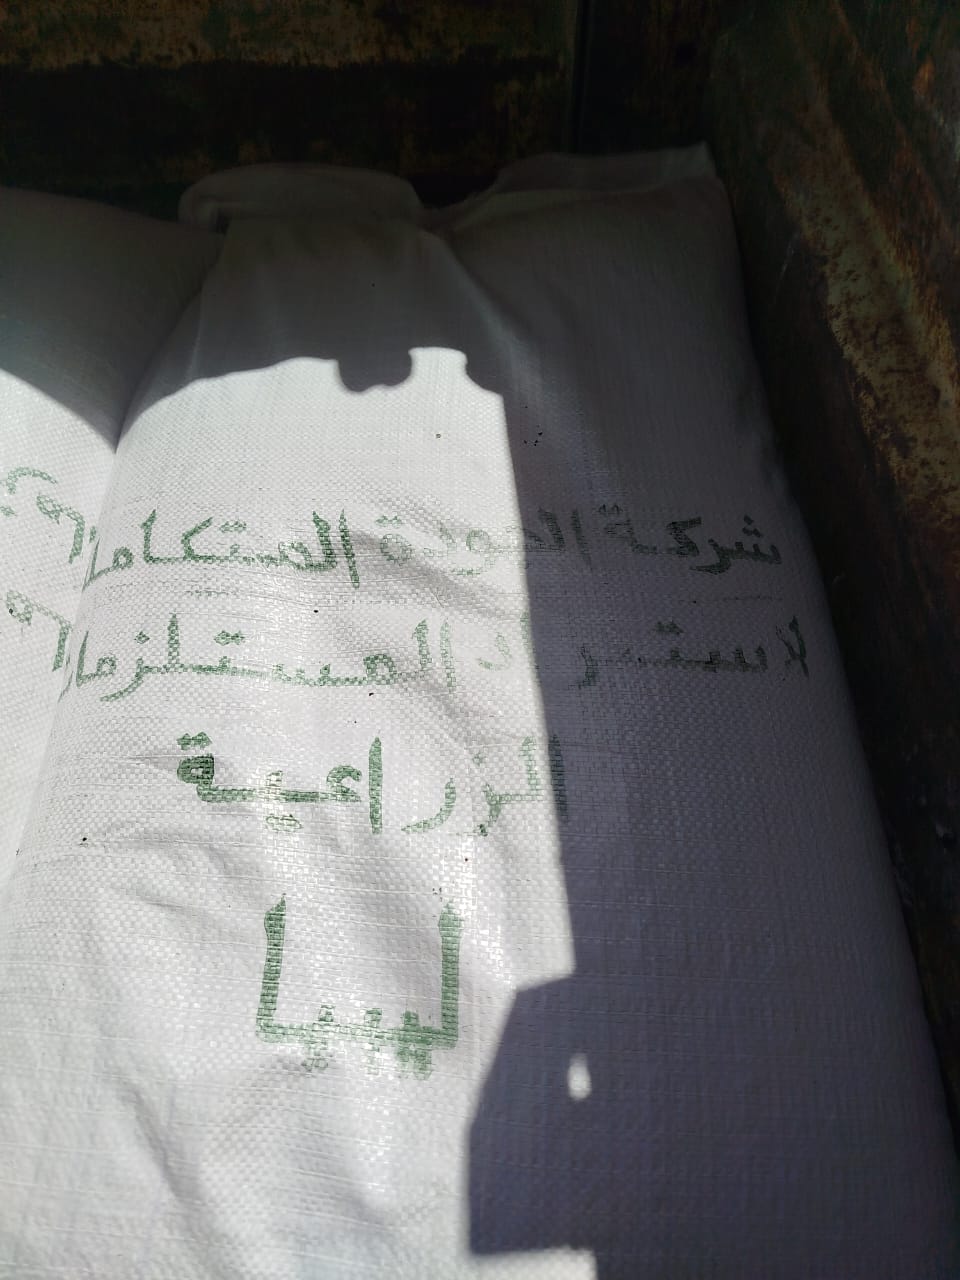 شركة الجودة المتكاملة
لاستيراد المستلزمات
الزراعية
ليبيا